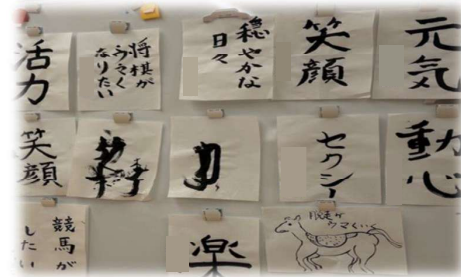 活力
将棋が
うまく
なりたい
穏やかな
日々
笑顔
元気
笑顔
セクシー
動心
競馬が
したい
楽
ウマくいく